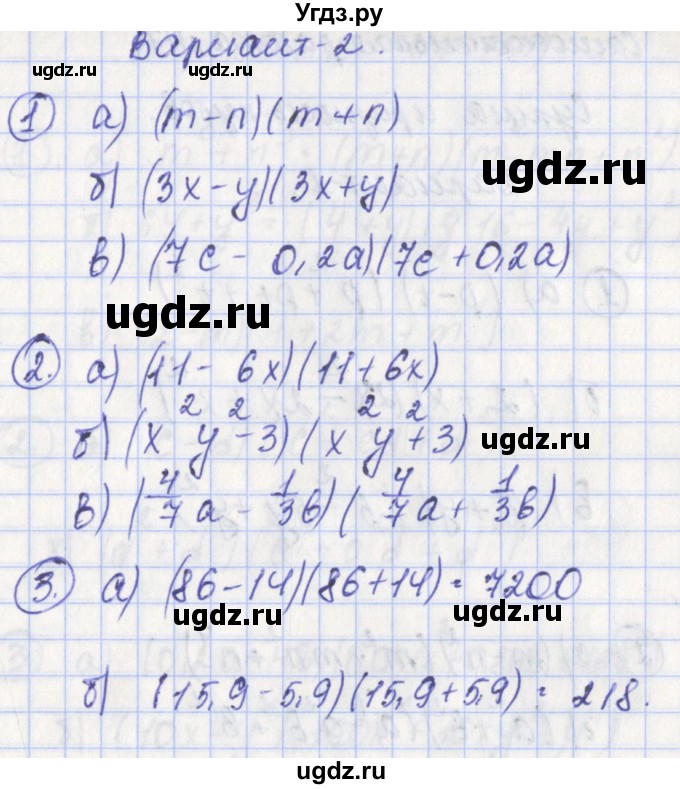 Угдз.ру
Вариант-2.
ugdz.ru ugdz.ru
1 а) (m-n)(m+n)
б) (3x-y)(3x+y)
ugdz.ru
в) (7c - 0,2a)(7c+0,2a)
ugdz.ru
2. а) (11- 6x)(11+6x)
б) (x²y²-3)(x²y²+3)
ugdz.ru
в) (4/7a - 1/3b)(4/7a+ 1/3b)
3. а) (86-14)(86+14)=7200
ugdz.ru ugdz.ru
б) (15,9-5,9)(15,9+5,9)= 218.
ugdz.ru